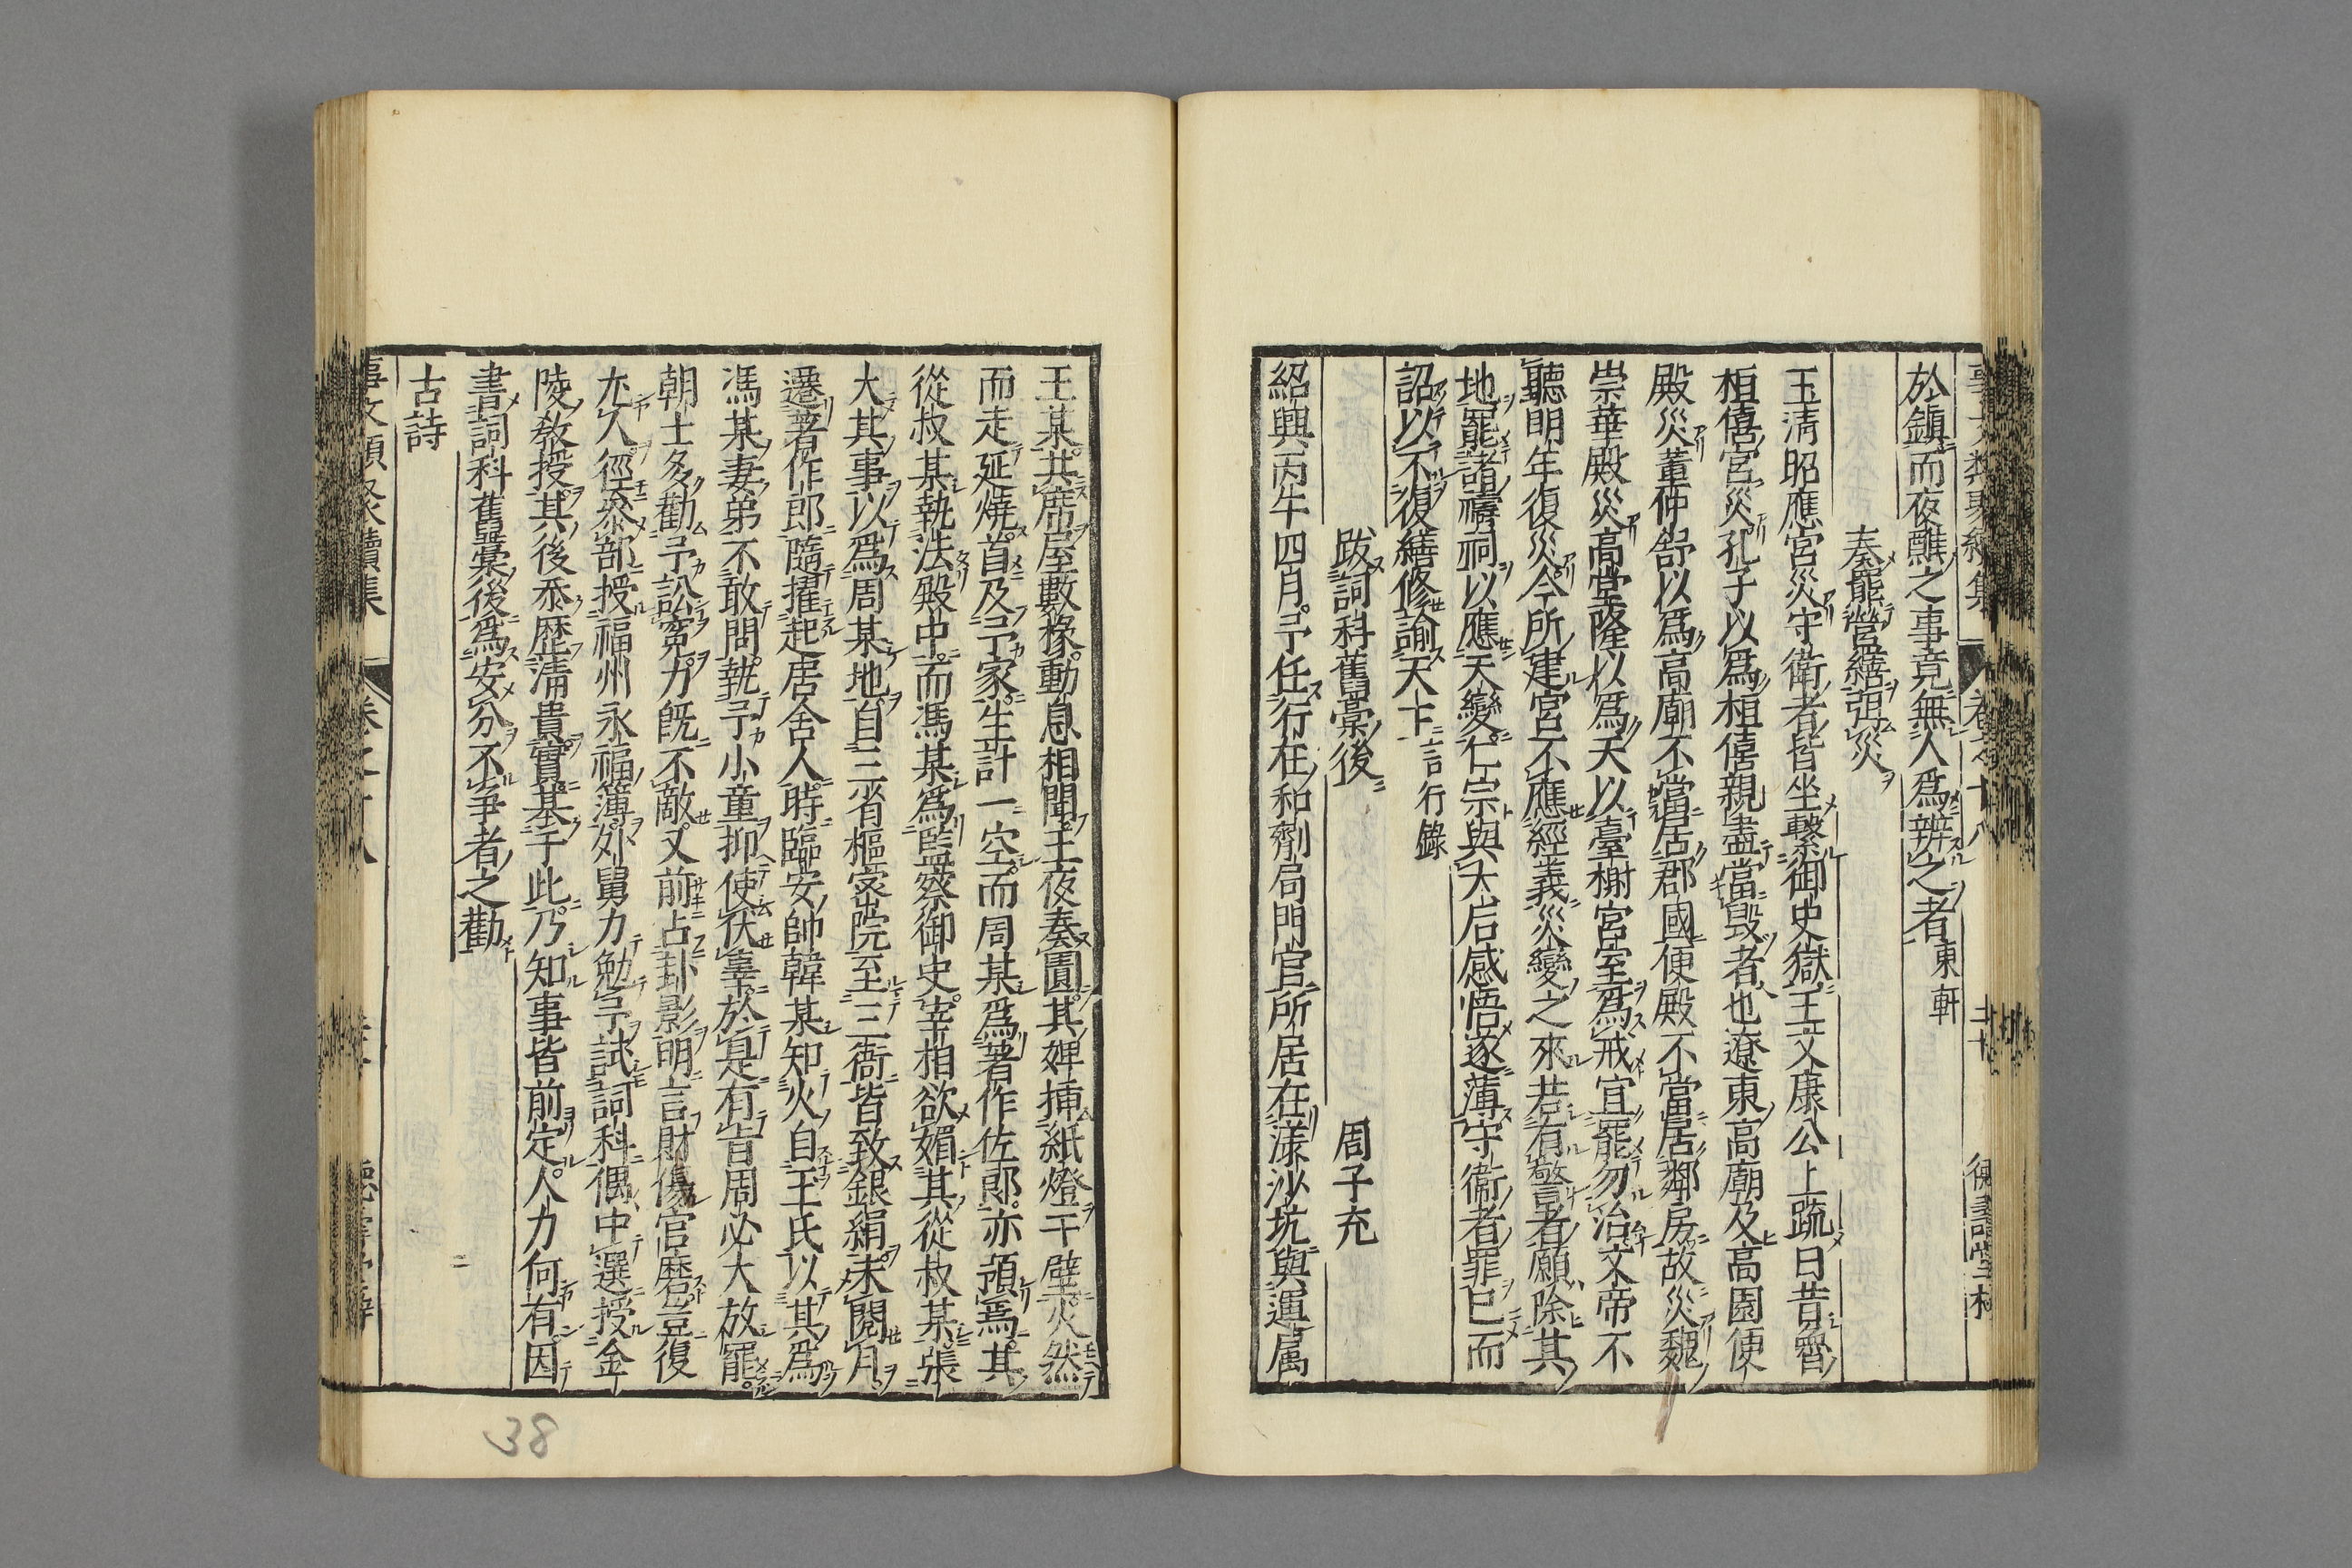 於鎮而夜醮之事竟無人爲辨之者東軒
奏罷營繕弭災
玉淸昭應宮災守衛者皆坐繫御史獄王文康公上疏曰昔魯
桓僖宮災孔子以爲桓僖親盡當毀者也遼東高廟及高園便
殿災董仲舒以爲高廟不當居郡國便殿不當居鄰房故災魏
崇華殿災高堂隆以爲天以臺榭宮室爲戒宜罷勿治文帝不
聽明年復災今所建宮不應經義災變之來若有警者願除其
地罷諸禱祠以應天變仁宗與太后感悟遂薄守衞者罪已而
詔以不復繕修諭天下言行錄
跋詞科舊稾後　周子充
紹興丙午四月予任行在和劑局門官所居在漾沙坑與運属
王某共席屋數椽動息相聞王夜奏圊其婢揷紙燈于壁火然
而走延燒首及予家生計一空而周某爲著作佐郎亦預焉其
從叔某執法殿中而馮某爲監察御史宰相欲媚其從叔某張
大其事以爲周某地自三省樞密院至三衙皆致銀絹未閱月
遷著作郎隨擢起居舍人時臨安帥韓某知火自王氏以其爲
馮某妻弟不敢問執予小童抑使伏辜於是有旨周必大放罷
朝士多勸予訟寃力旣不敵又前占卦影明言財傷官磨豈復
尢人徑叅部授福州永福簿外舅力勉予試詞科偶中選授金
陵敎授其後忝歷淸貴實基于此乃知事皆前定人力何有因
書詞科舊稾後爲安分不爭者之勸
古詩
38